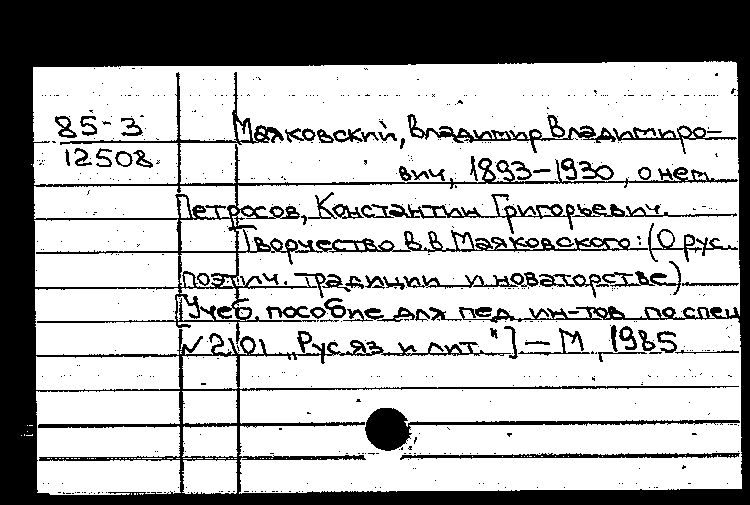 85-3
12508
Маяковский, Владимир Владимиро-
вич, 1893-1930, о нем.
Петросов, Константин Григорьевич.
Творчество В.В. Маяковского: (О рус.
поэтич. традиции и новаторстве).
[Учеб. пособие для пед. ин-тов по спец.
№ 2101 „Рус. яз. и лит."] — М., 1985.